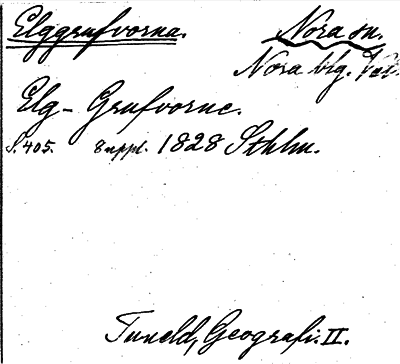 Elggrufvorna. Nora sn.
Nora blg. Väs
Elg-Grufvorne.
S. 405. 8 uppl. 1828 Sthlm.
Tuneld, Geografi. II.